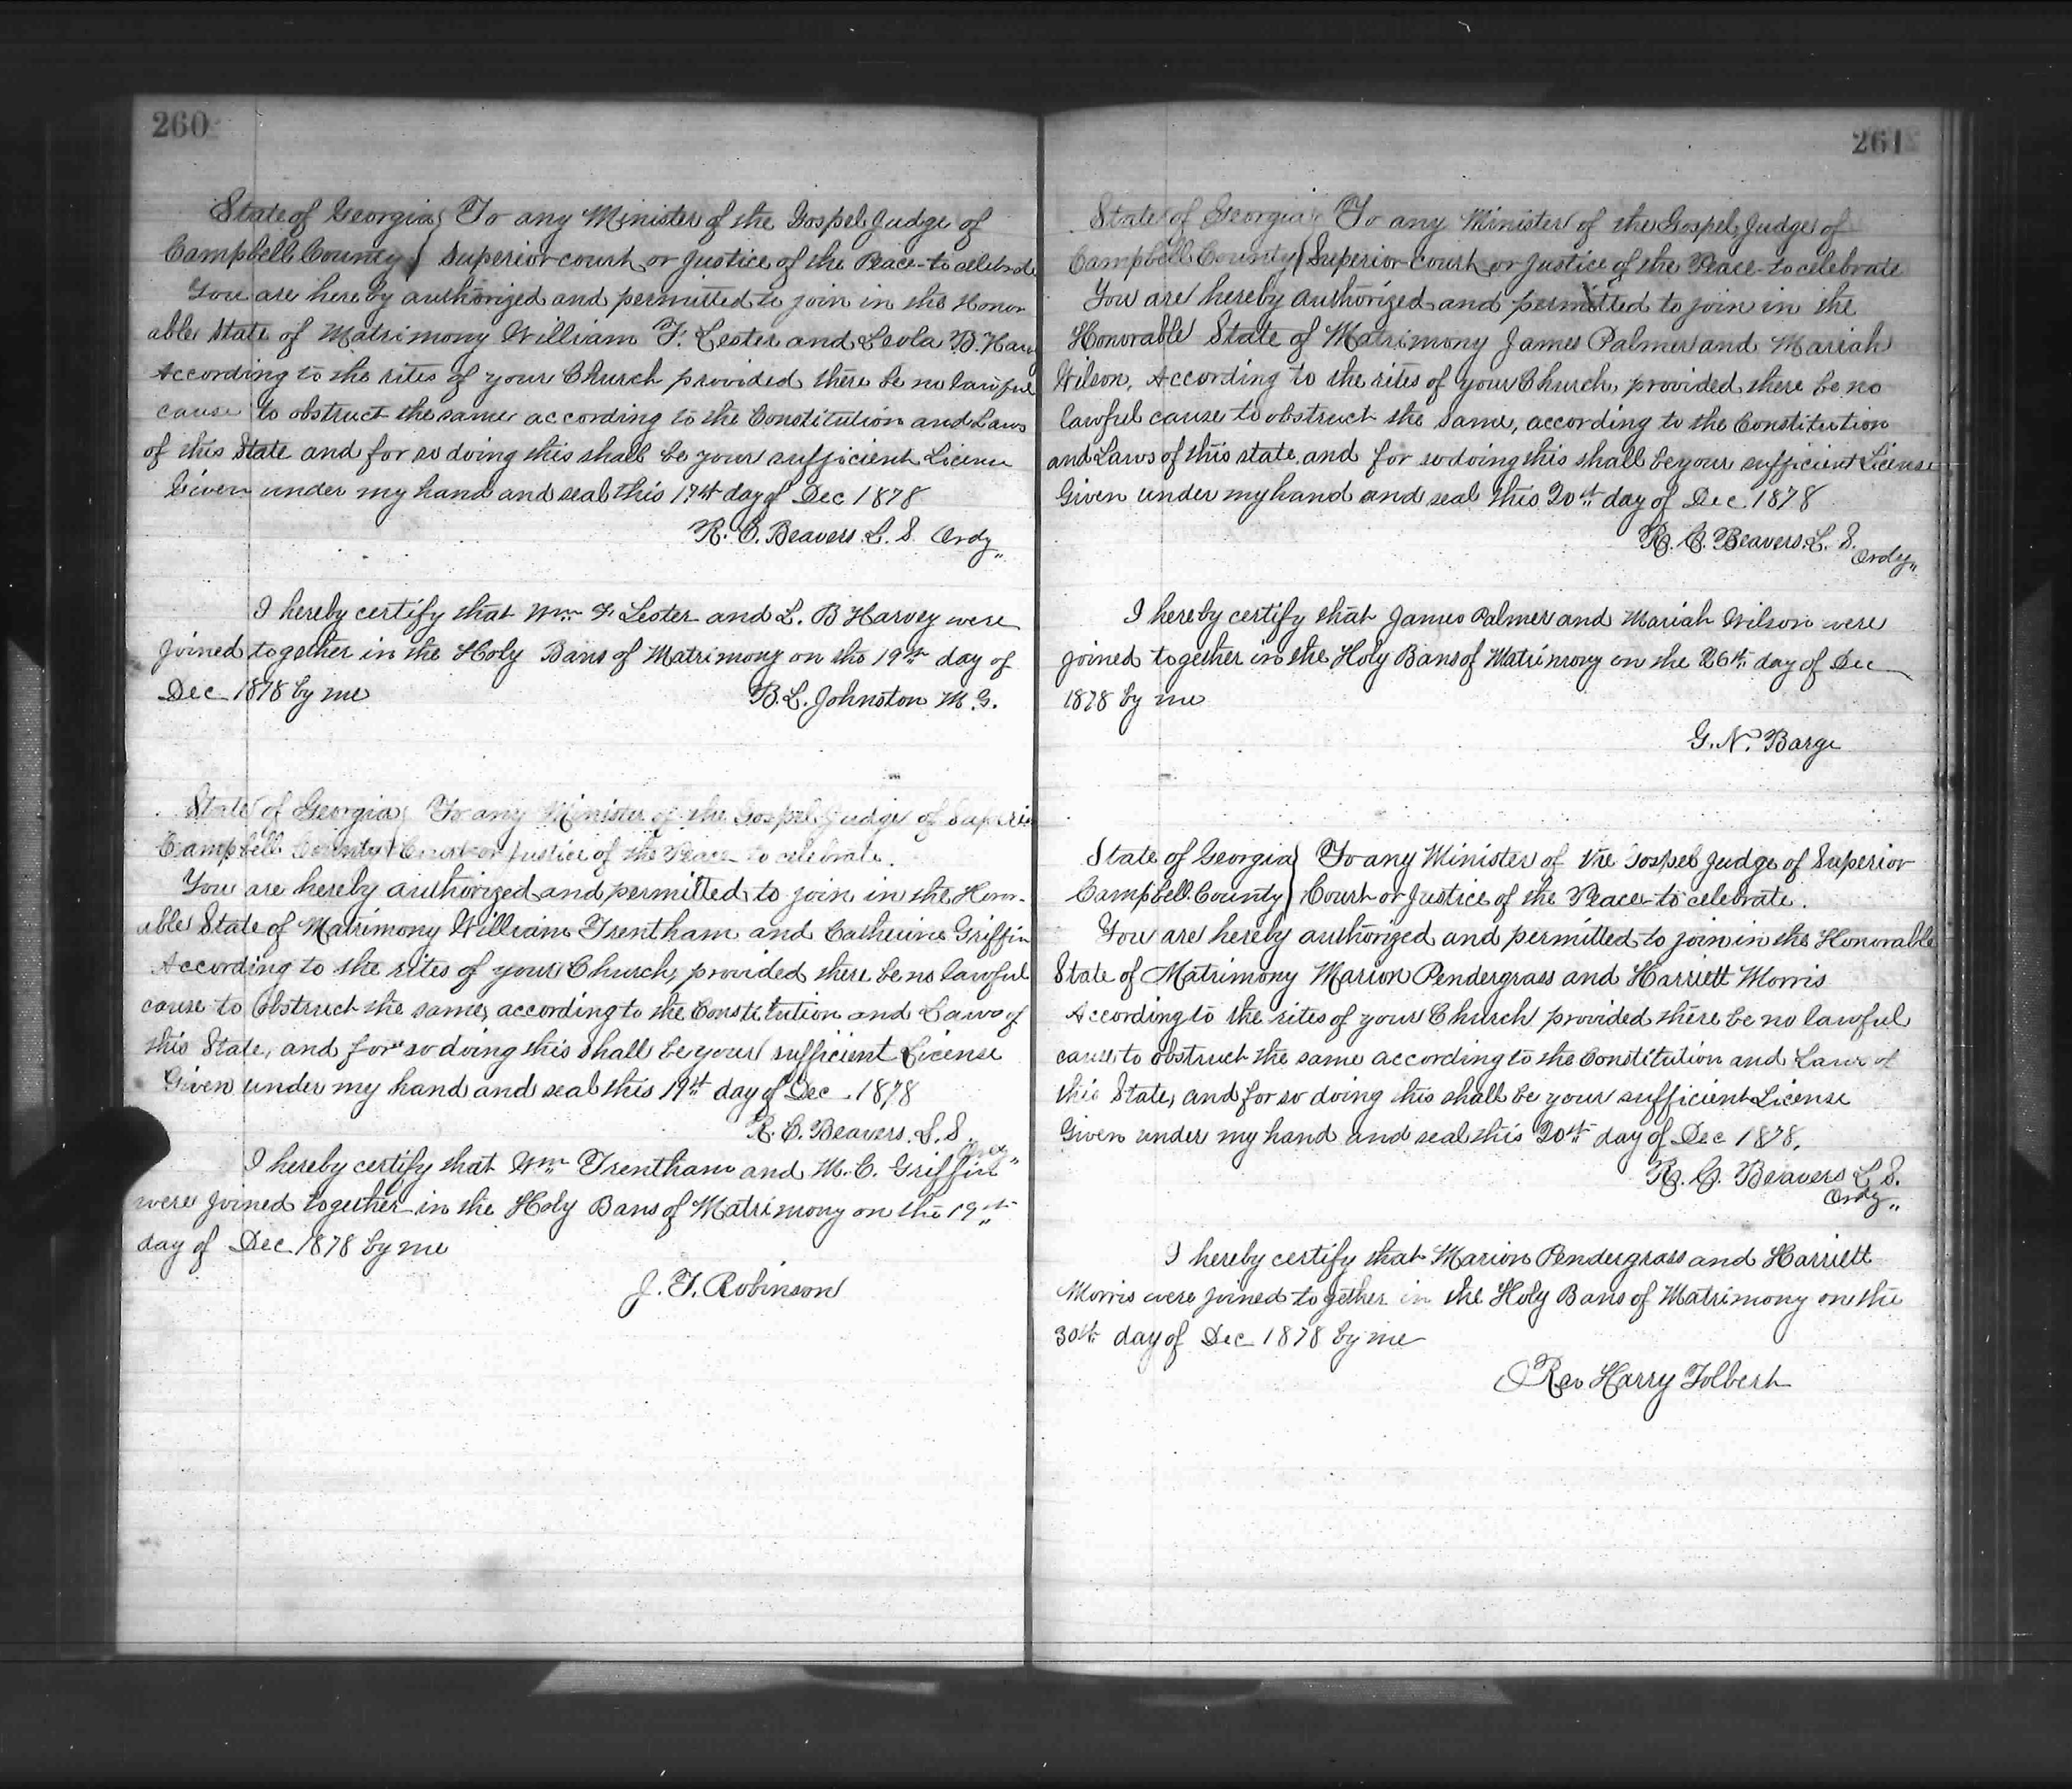 260
State of Georgia } To any Minister of the Gospel Judge of
Campbell County } Superior court or Justice of the Peace to celebrate
You are hereby authorized and permitted to join in the Honor
able State of Matrimony William F. Lester and Leola B. Harv
According to the rites of your Church provided there be no lawful
cause to obstruct the same according to the Constitution and Laws
of this State and for so doing this shall be your sufficient License
Given under my hand and seal this 17th day of Dec 1878
R. C. Beavers L. S. Ordy
I hereby certify that Wm F Lester and L. B Harvey were
joined together in the Holy Bans of Matrimony on the 19th day of
Dec 1878 by me B. L. Johnston M. G.
State of Georgia } To any Minister of the Gospel Judge of Superior
Campbell County } Court or Justice of the Peace to celebrate.
You are hereby authorized and permitted to join in the Honor-
able State of Matrimony William Trentham and Catherine Griffin
According to the rites of your Church, provided there be no lawful
cause to obstruct the same, according to the Constitution and Laws of
this State, and for so doing this shall be your sufficient License
Given under my hand and seal this 19th day of Dec. 1878
R. C. Beavers. L. S.
Ordy
I hereby certify that Wm Trentham and M. C. Griffin
were joined together in the Holy Bans of Matrimony on the 19th
day of Dec. 1878 by me
J. T. Robinson
261
State of Georgia } To any Minister of the Gospel, Judge of
Campbell County } Superior Court or Justice of the Peace to celebrate
You are hereby authorized and permitted to join in the
Honorable State of Matrimony James Palmer and Mariah
Wilson, According to the rites of your Church, provided there be no
lawful cause to obstruct the same, according to the Constitution
and Laws of this state and for so doing this shall be your sufficient License
Given under my hand and seal this 20th day of Dec. 1878
R. C. Beavers. L. S.
Ordy
I hereby certify that James Palmer and Mariah Wilson were
joined together in the Holy Bans of Matrimony on the 26th day of Dec
1878 by me
G. N. Barge
State of Georgia } To any Minister of the Gospel Judge of Superior
Campbell County } Court or Justice of the Peace to celebrate.
You are hereby authorized and permitted to join in the Honorable
State of Matrimony Marion Pendergrass and Harriett Morris
According to the rites of your Church provided there be no lawful
cause to obstruct the same according to the Constitution and Laws of
this State, and for so doing this shall be your sufficient License
Given under my hand and seal this 20th day of Dec 1878.
R. C. Beavers L. S.
Ordy
I hereby certify that Marion Pendergrass and Harriett
Morris were joined together in the Holy Bans of Matrimony on the
30th day of Dec 1878 by me
Rev Harry Tolbert